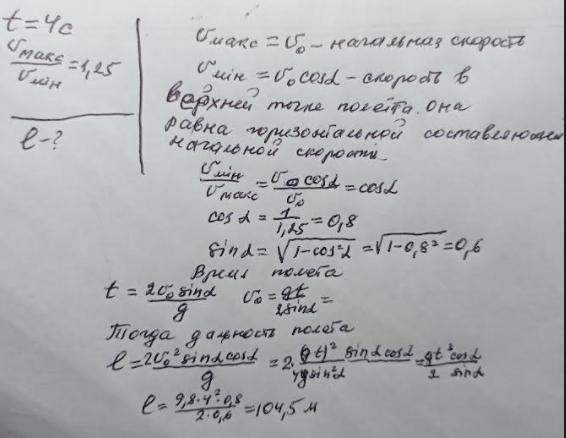 t = 4с
υмакс/υмін = 1,25
l - ?
υмакс = υ₀ - начальная скорость
υмін = υ₀cosα - скорость в
верхней точке полета. Она
равна горизонтальной составляющей
начальной скорости.
υмін/υмакс = υ₀cosα/υ₀ = cosα
cosα = 1/1,25 = 0,8
sinα = √(1-cos²α) = √(1-0,8²) = 0,6
Время полета
t = 2υ₀sinα/g υ₀ = gt/2sinα =
Тогда дальность полета
l = 2υ₀²sinαcosα/g = 2·(gt)² sinαcosα/4gsin²α = gt²cosα/2 sinα
l = 9,8·4²·0,8/2·0,6 = 104,5 м